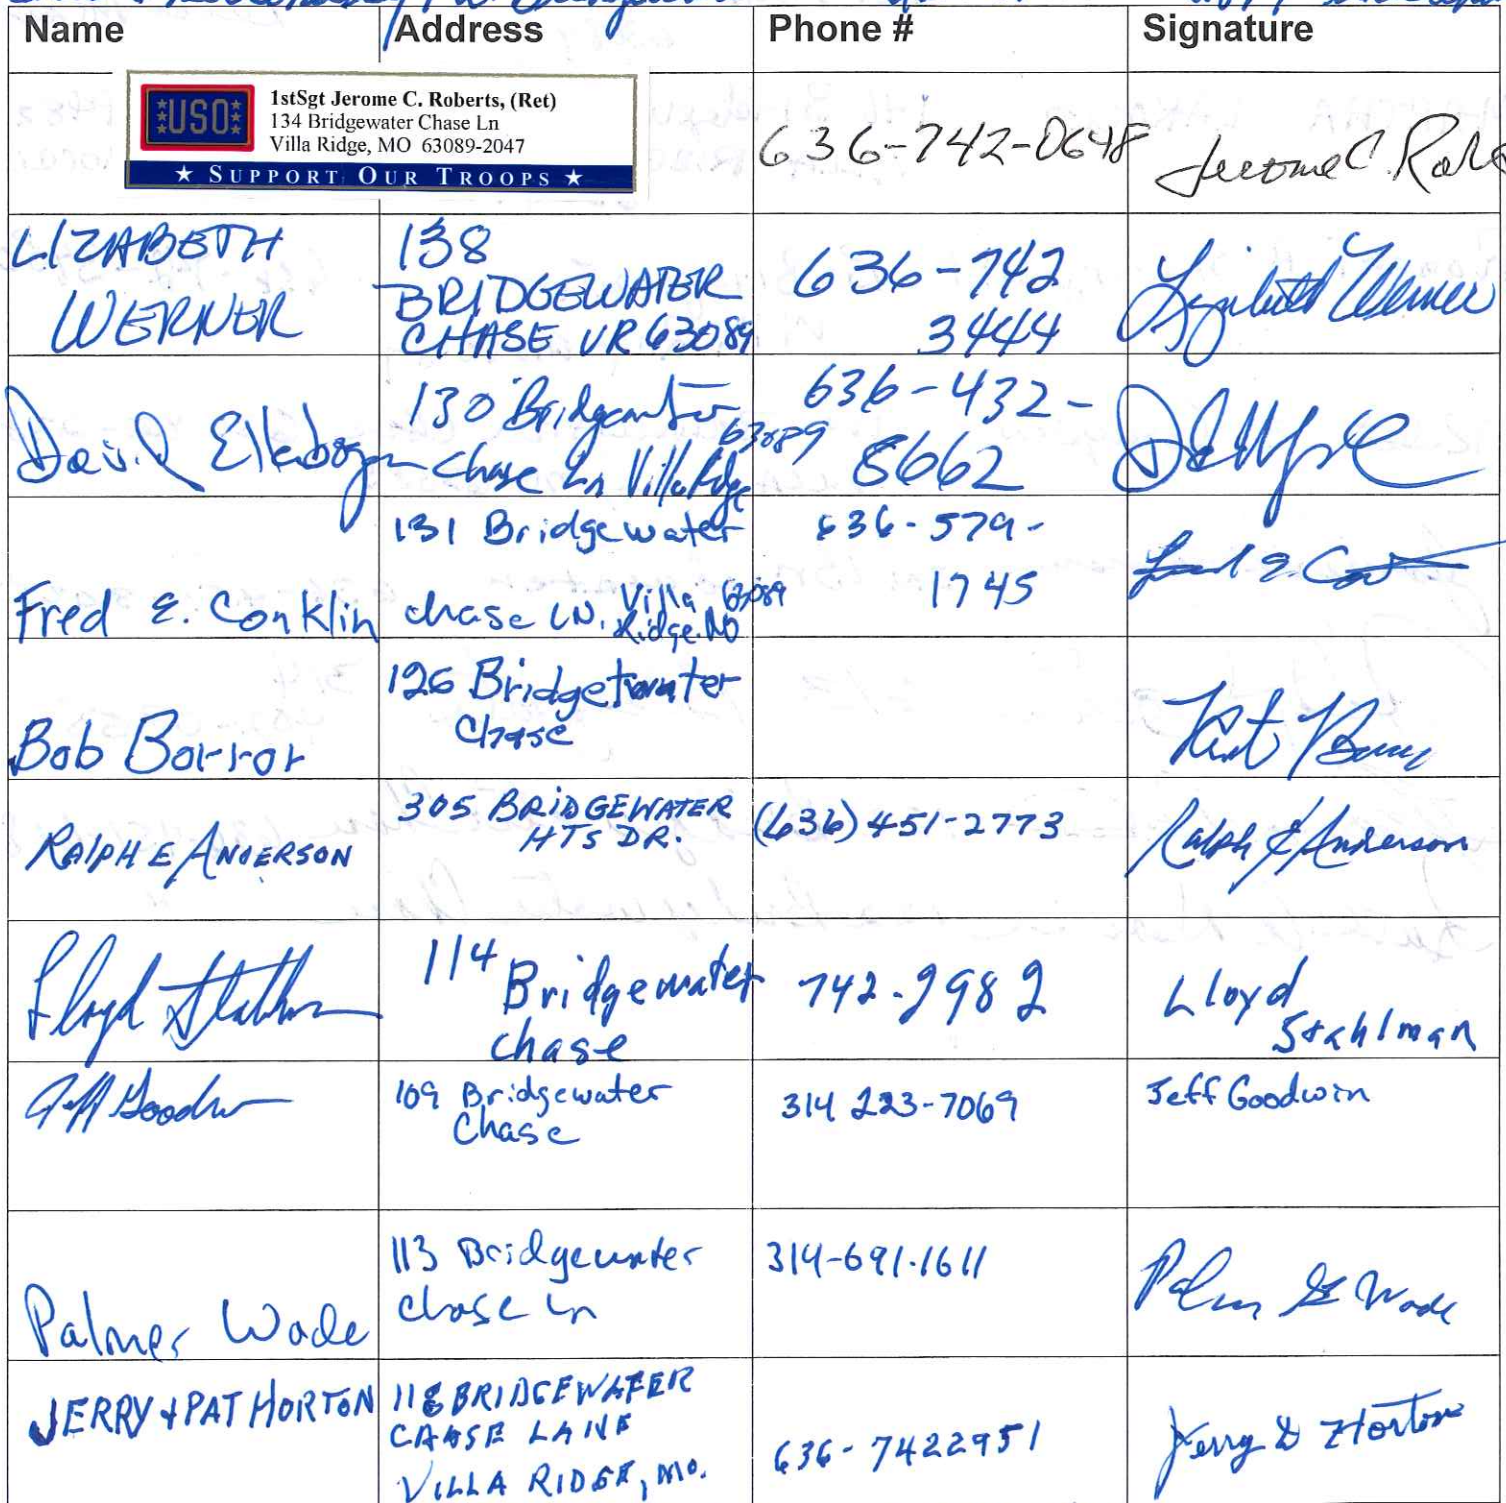 Name Address Phone # Signature
USO
1stSgt Jerome C. Roberts, (Ret)
134 Bridgewater Chase Ln
Villa Ridge, MO 63089-2047
★ SUPPORT OUR TROOPS ★
636-742-0648
Jerome C. Robe
LIZABETH
WERNER
138
BRIDGEWATER
CHASE VR 63089
636-742
3444
Lizabeth Werner
David
130 Bridgewater
Chase Ln Villa Ridge
63089
636-432-
8662
Fred E. Conklin
131 Bridgewater
chase LN. Villa 63089
Ridge. MO
636-579-
1745
Bob Borror
126 Bridgetwater
Chase
RALPH E ANDERSON
305 BRIDGEWATER
HTS DR.
(636) 451-2773
Ralph E Anderson
Lloyd
114
Bridgewater
chase
742-2982
Lloyd
Stahlman
Jeff Goodwin
109 Bridgewater
Chase
314 223-7069
Jeff Goodwin
Palmer Wade
113 Bridgewater
chase Ln
314-691-1611
Wade
JERRY + PAT HORTON
118 BRIDGEWATER
CAHSE LANE
VILLA RIDGE, MO.
636-7422951
Jerry D Horton